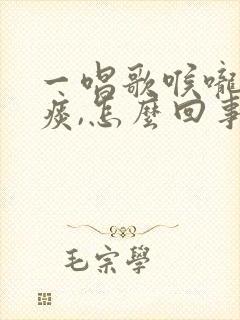 一唱歌喉嚨
痰,怎麼回事
毛宗學